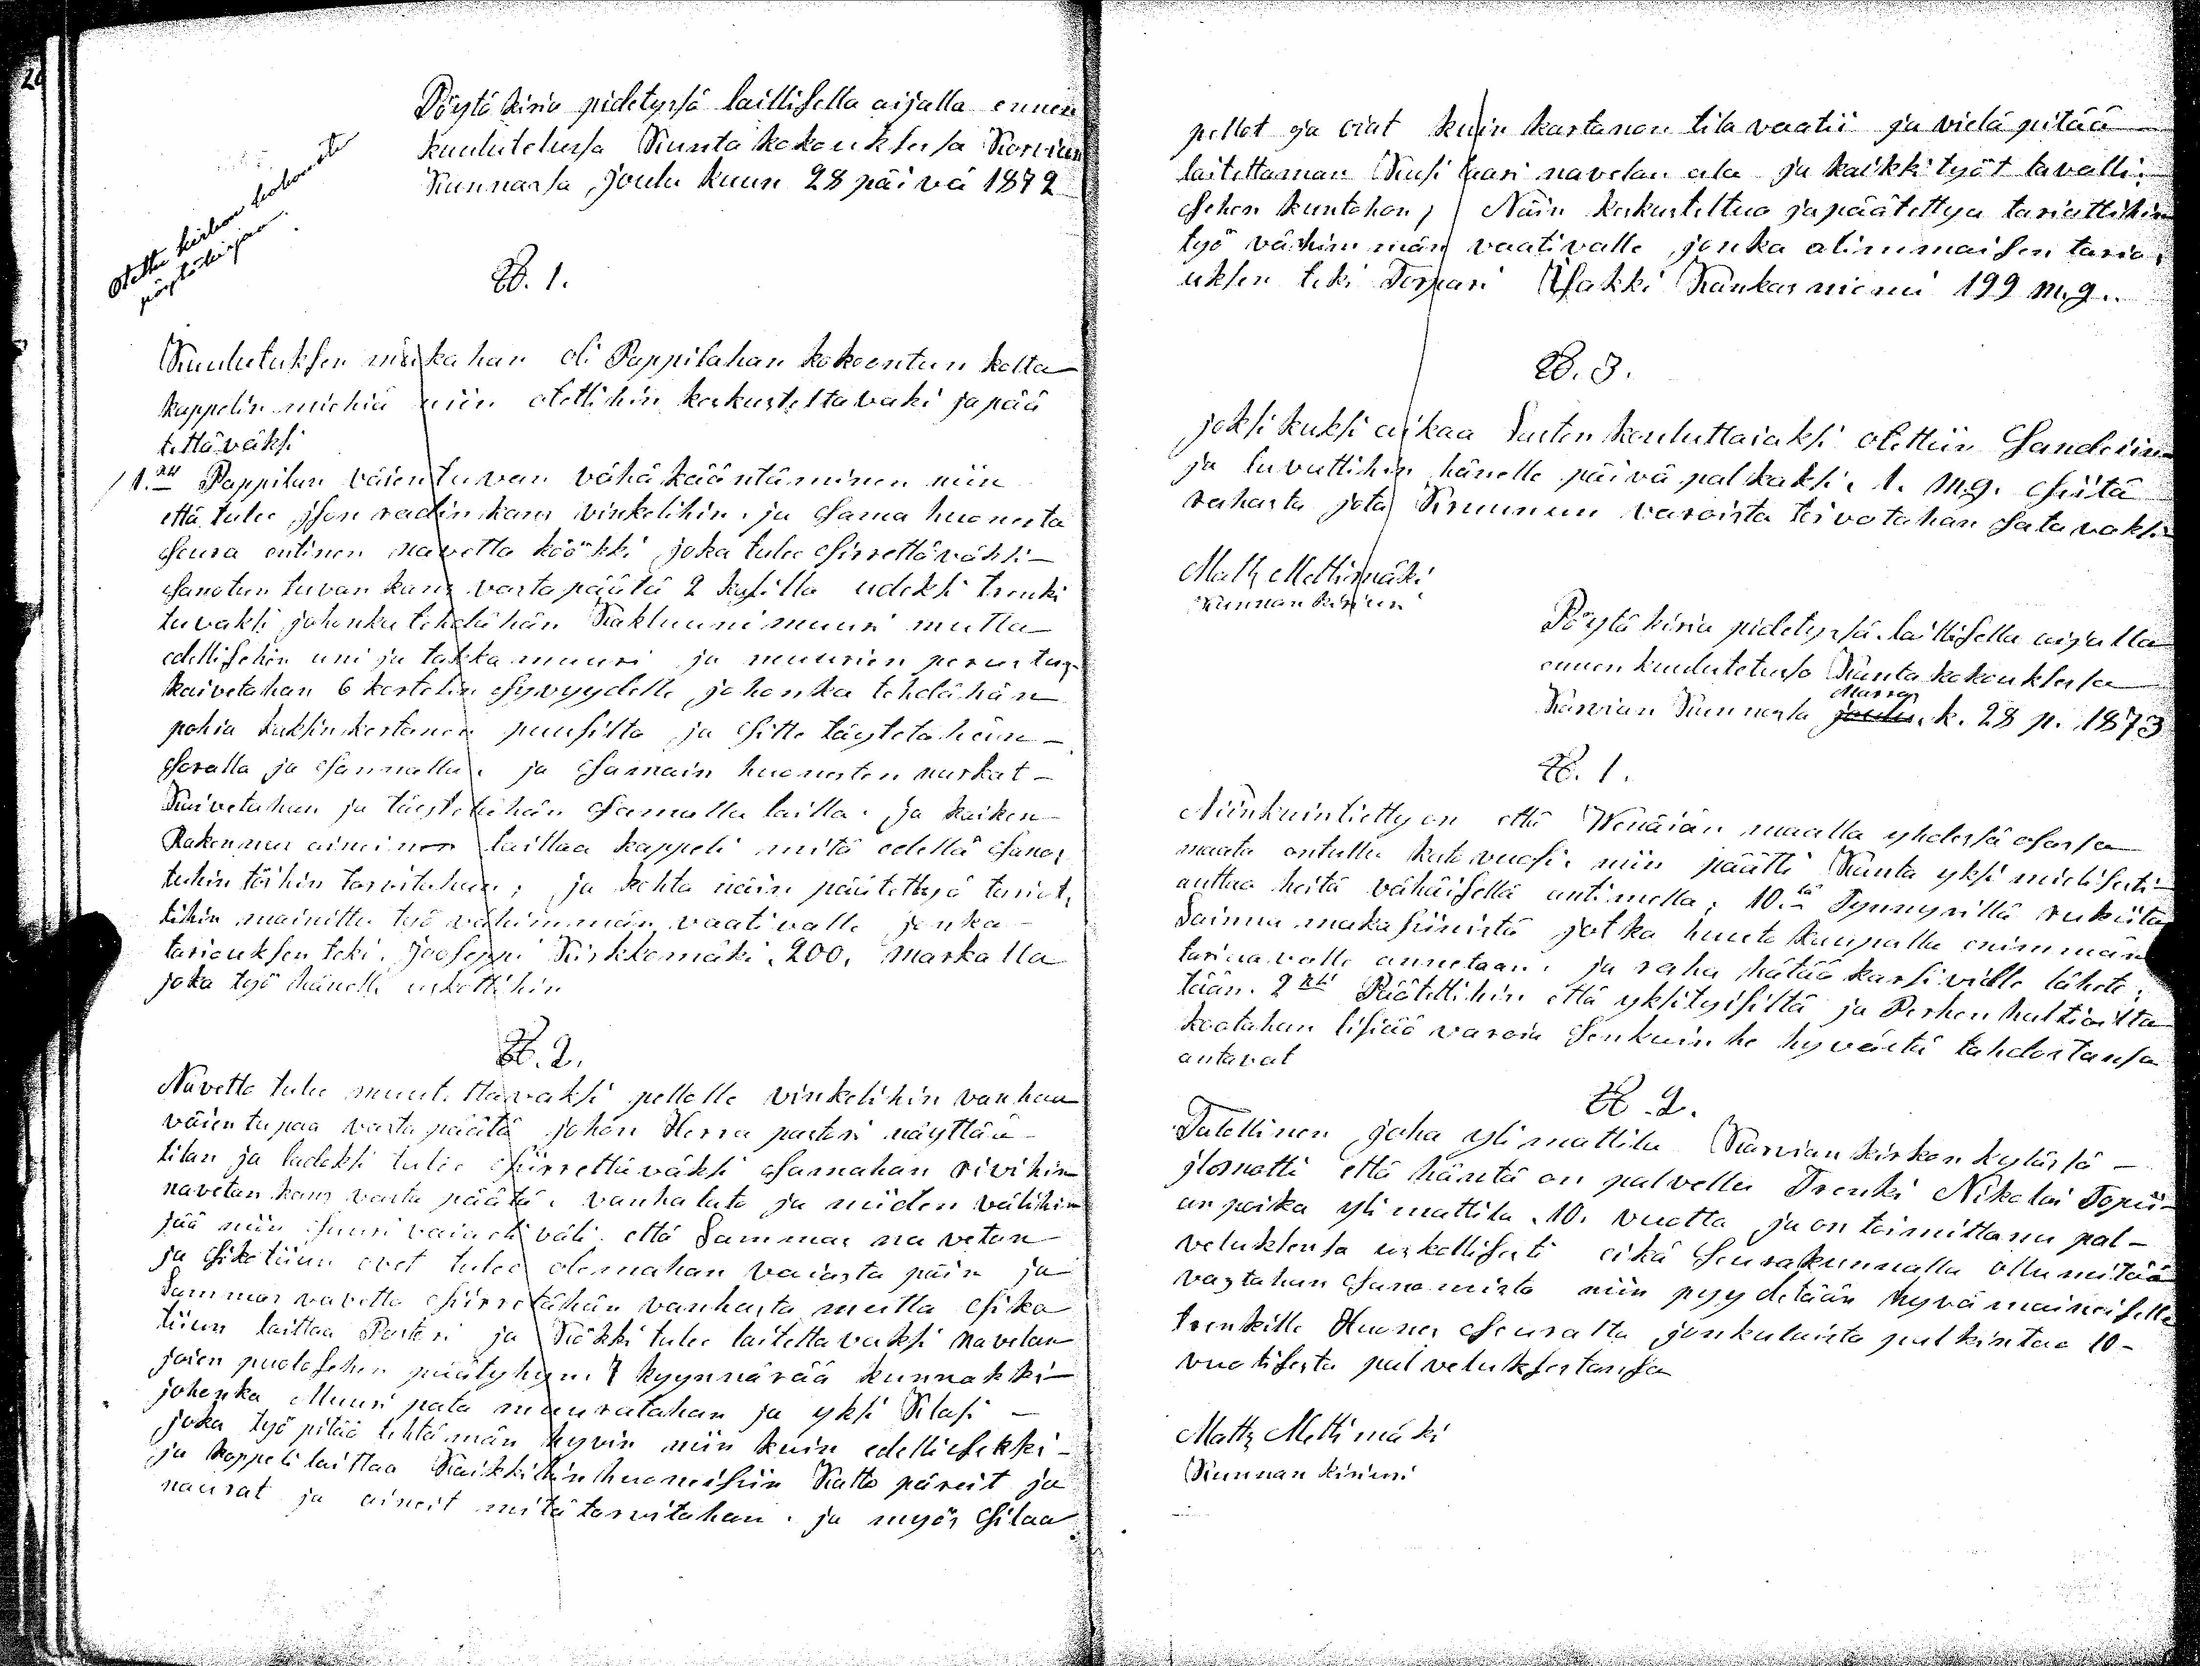 26
Otettu kirkon kokousten
pöytäkirjaan.
Pöytä kiria pidetyssä laillisella aijalla ennen
kuulutetussa Kunta kokouksessa Karvian
Kunnassa, joulu kuun 28 päivä 1872
§. 1.
Kuulutuksen mukahan oli Pappilahan kokoontun kolta
kappelin miehiä niin otettihin keskusteltavaki ja pää
tettäväksi
1.xsi Pappilan väientuvan vähä kääntäminen niin
että tulee json radin kans vinkelihin. ja sama huonesta
seura entinen navetta köökki joka tulee siirrettäväksi
sanotun tuvan kans vastapäätä 2 kysilla udeksi trenki
tuvaksi johonka tehdähän Kakluuni muuri mutta
edellisehin uni ja takka muuri ja muurien perustus
kaivetahan 6 kortelin syvyydelle johonka tehdähän
pohia kaksinkertanen puusilta ja sitte täytetähän
soralla ja sannalla. ja samain huonesten nurkat
Kaivetahan ja täytetähän samalla lailla. Ja kaiken
Rakennus aineinen laittaa kappeli mitä edellä sanot
tuhin töihin tarvitahan; ja kohta näin päätettyä tariot,
tihin mainittu työ vähimmän vaativalle jonka
tariouksen teki. Jooseppi Kirkkomäki. 200. markalla
joka työ hänelle uskottihin
§. 2.
Navetto tulee muutettavaksi pellolle vinkelihin vanhan
väien tupaa vasta päätä johon Herra pastori näyttää
tilan ja ladoksi tulee siirrettäväksi samahan rivihin
navetan kans vasta päätä. vanha lato ja niiden välihin
jää niin suuri vaiaeti väli. että Lammas navetan
ja sikotiiun ovet tulee olemahan vaiasta päin ja
Lammas navetto siirretähän vanhasta mutta sika
tiiun laittaa Pastori ja Kökki tulee laitettavaksi navetan
joien puolosehen päätyhyn. 7 kyynnärää kunnakki
johonka Muuri pata muuratahan ja yksi Klasi
joka työ pitää tehtämän hyvin niin kuin edellisekki
ja kappeli laittaa Kaikkihin huoneisiin Katto päreit ja
naurat ja aineit mitä tarvitahan. ja myös silaa
pellot ja oiat kuin kartanon tila vaatii ja vielä pitää
laitettaman Kusi kaari navetan ala ja kaikki työt tavalli-
sehen kuntohon; Näin keskusteltua ja päätettyä tariottihin
työ vähimmän vaativalle jonka alimmaisen tario,
uksen teki Torpari Isakki Kankasniemi 199 m.g..
§. 3.
joksikuksi aikaa Lasten kouluttaiaksi otettiin Sanderin
ja luvattihin hänelle päivä palkaksi. 1. m.g. siitä
rahasta jota Kruunun varoista toivotahan satavaksi
Matts Mettimäki
Kunnan kiriuri
Pöytä kiria pidetyssä laillisella aijalla
ennen kuulutetussa Kunta kokouksessa
Karvian Kunnassa joulu Marras k. 28 p. 1873
§. 1.
Niinkuin tietty on että Wenäiän maalla yhdessä osassa
maata ontullu kato vuosi. niin päätti Kunta yksi mielisesti
auttaa heitä vähäisellä antimella; 10.tä Tynnyrillä rukiita
Lainna makasiinista jotka huuto kaupalla enimmän
tariuavalle annetaan. ja raha hätää karsiville lähete,
tään. 2xsi Päätettihin että yksityisiltä ja Perhen haltioilta
kootahan lisiää varoia senkuin he hyvästä tahdostansa
antavat
§. 2.
Talollinen joha ylimattila Karvian kirkon kylästä
jlomotti että häntä on palvellu Trenki Nikolai Topii-
an poika ylimattila. 10. vuotta ja on toimittanu pal-
veluksensa uskollisesti eikä seurakunnalla ollu mitää
vastahan sanomista niin pyydetään hyvä mainoiselle
trenkille Huones seuralta jonkulaista palkintoa 10-
vuotisesta palveluksestansa
Matts Mettimäki
Kunnan kiriuri